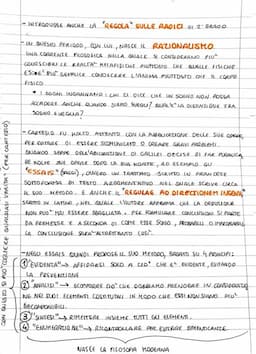 - INTRODUSSE ANCHE LA "REGOLA" SULLE RADICI DI 2° GRADO
- IN QUESTO PERIODO, CON LUI, NASCE IL RAZIONALISMO
UNA CORRENTE FILOSOFICA NELLA QUALE SI CONSIDERANO PIÙ
CONOSCIBILI LE REALTÀ METAFISICHE PIUTTOSTO CHE QUELLE FISICHE
ES: È PIÙ SEMPLICE CONOSCERE L'ANIMA PIUTTOSTO CHE IL CORPO
FISICO
• I SOGNI INGANNANO: CHI CI DICE CHE UN SOGNO NON POSSA
ACCADERE ANCHE QUANDO SIAMO SVEGLI? QUAL'È LA DIFFERENZA FRA
SOGNO E VEGLIA?
- CARTESIO FU MOLTO ATTENTO CON LA PUBBLICAZIONE DELLE SUE OPERE,
PER EVITARE DI ESSERE SCOMUNICATO O CREARE GRAVI PROBLEMI.
QUANDO SEPPE DELL'ABIURAZIONE DI GALILEI DECISE DI FAR PUBBLICA
RE MOLTE SUE OPERE DOPO LA SUA MORTE, AD ESEMPIO GLI
"ESSAIS" (SAGGI), OVVERO UN TRATTATO SCRITTO IN FRANCESE
SOTTOFORMA DI TESTO ARGOMENTATIVO NEL QUALE SCRIVE CIRCA
IL SUO METODO. E ANCHE IL "REGULAE AD DIRECTIONEM INGENII"
SCRITTO IN LATINO, NEL QUALE L'AUTORE AFFERMA CHE LA DEDUZIONE
NON PUÒ PIÙ ESSERE SBAGLIATA, PER FORMULARE CONCLUSIONI SI PARTE
DA PREMESSE E A SECONDA DI COME ESSE SONO, PROBABILI O IMPROBABILI
LA CONCLUSIONE SARÀ ALTRETTANTO COSÌ.
- NEGLI ESSAIS QUINDI PROPONE IL SUO METODO, BASATO SU 4 PRINCIPI:
1 "EVIDENZA" → AFFIDARSI SOLO A CIÒ CHE È EVIDENTE, EVITANDO
LA PREVENZIONE
2 "ANALISI" → SCOMPORRE CIÒ CHE DOBBIAMO PRENDERE IN CONSIDERAZIO
NE NEI SUOI ELEMENTI COSTITUTIVI IN MODO CHE ESSI NON SIANO PIÙ
SCOMPONIBILI
3 "SINTESI" → RIMETTERE INSIEME TUTTI GLI ELEMENTI
4 "ENUMERAZIONE" → RICONTROLLARE PER EVITARE DIMENTICANZE
NASCE LA FILOSOFIA MODERNA